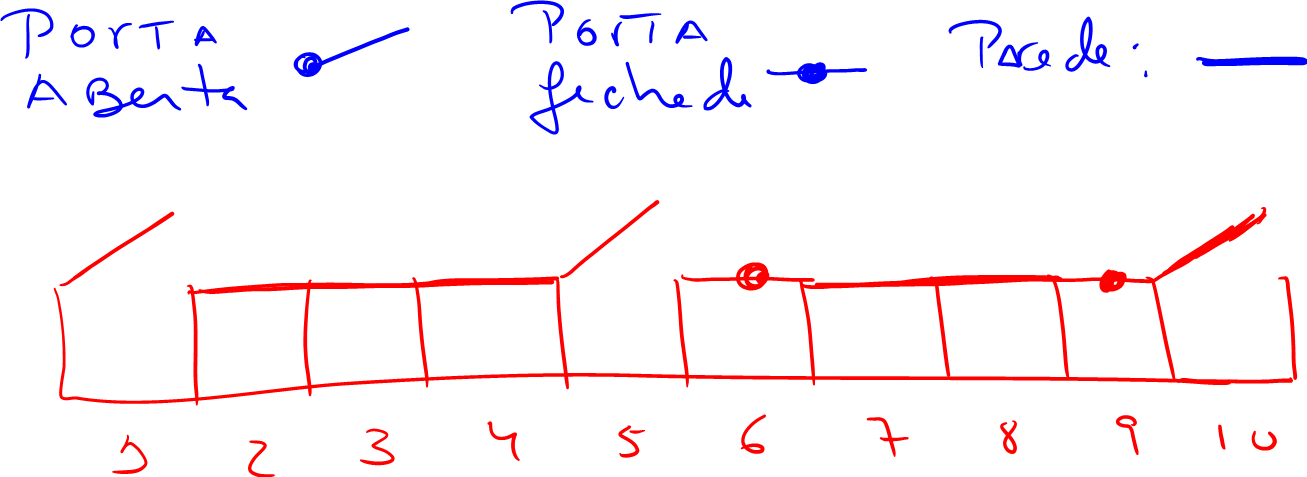 PORTA
ABerta
PORTA
fechada
Parede:
1 2 3 4 5 6 7 8 9 10